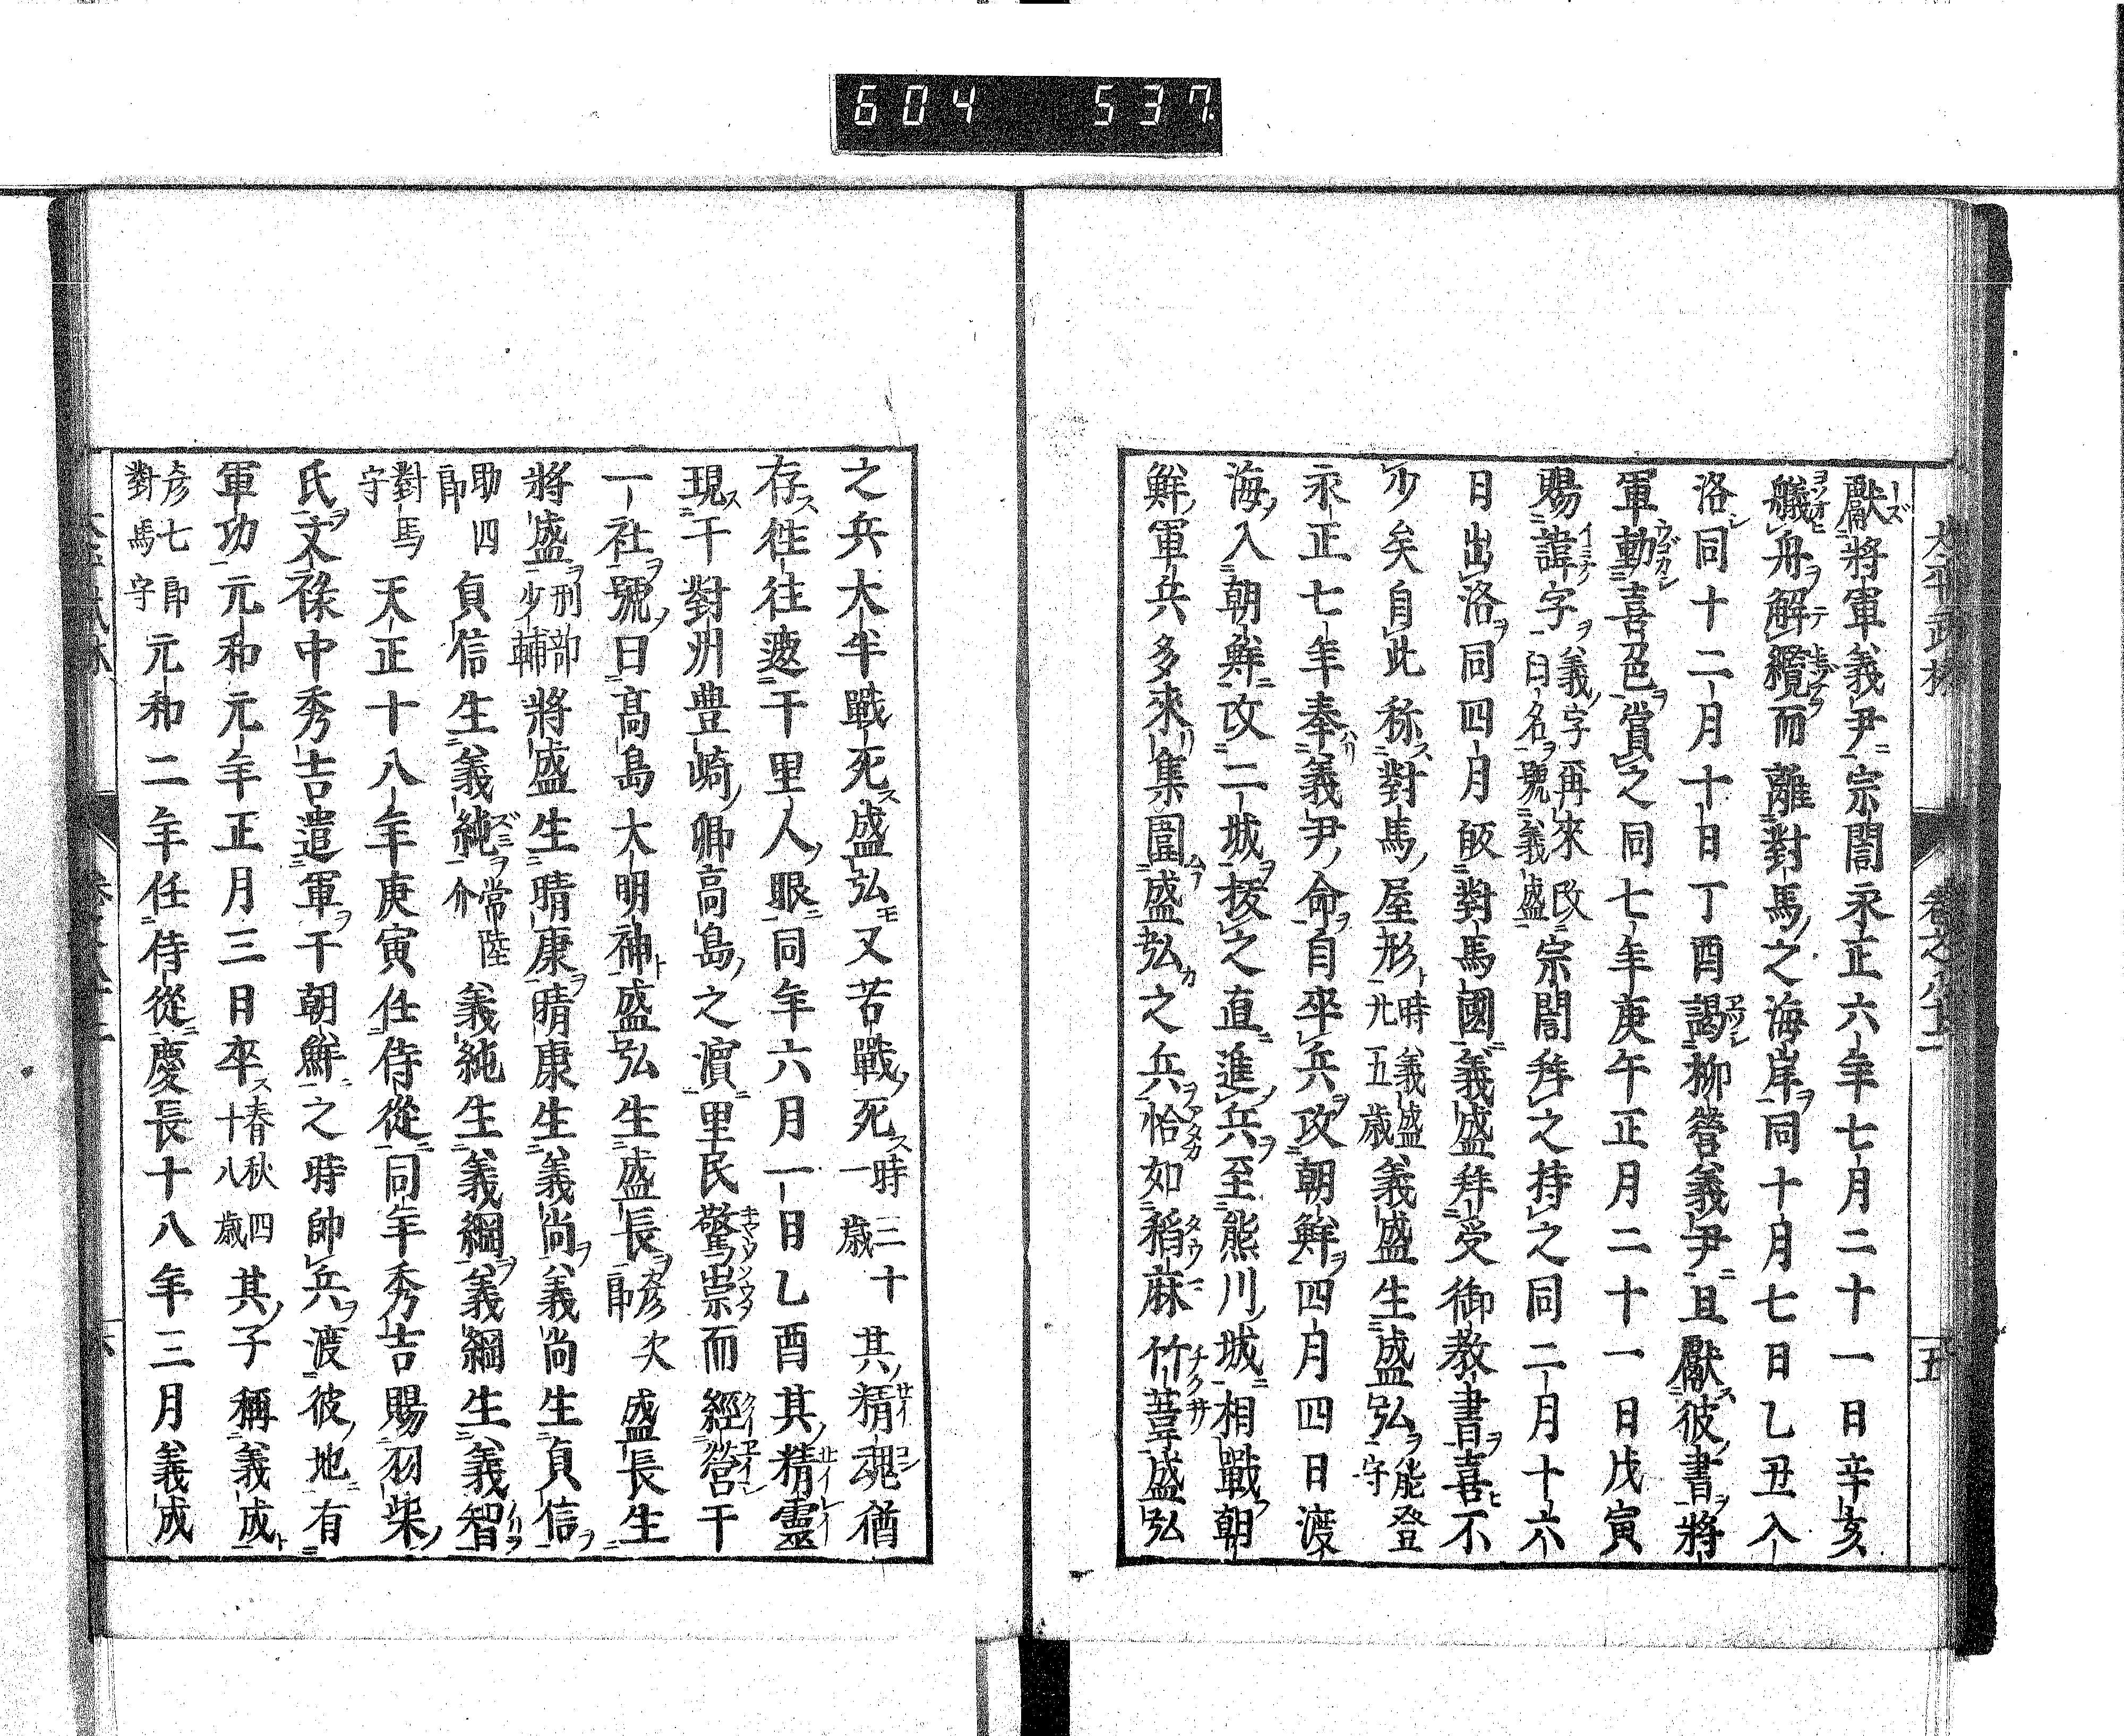 604 537
太平武林 卷之八十二 五
獻將軍義尹宗誾永正六年七月二十一日辛亥
艤舟解纜而離對馬之海岸同十月七日乙丑入
洛同十二月十日丁酉謁柳營義尹且獻彼書將
軍動喜色賞之同七年庚午正月二十一日戊寅
賜諱字義字再來改名號義盛宗誾拜之持之同二月十六
日出洛同四月皈對馬國義盛拜受御教書喜不
少矣自此称對馬屋形時義盛卅五歳義盛生盛弘能登守
永正七年奉義尹命自卒兵攻朝鮮四月四日渡
海入朝鮮攻二城拔之直進兵至熊川城相戰朝
鮮軍兵多來集圍盛弘之兵恰如稻麻竹葦盛弘
之兵大半戰死盛弘又苦戰死時三十一歳其精魂猶
存徃往遮千里人眼同年六月一日乙酉其精靈
現于對州豊崎卿高島之濵里民驚祟而經營于
一社號曰高島大明神盛弘生盛長彦次郎盛長生
將盛刑部少輔將盛生晴康晴康生義尚義尚生貞信
助四郎貞信生義純常陸介義純生義綱義綱生義智
對馬守天正十八年庚寅任侍從同年秀吉賜羽柴
氏文禄中秀吉遣軍于朝鮮之時帥兵渡彼地有
軍功元和元年正月三日卒春秋四十八歳其子稱義成
彦七郎對馬守元和二年任侍從慶長十八年三月義成